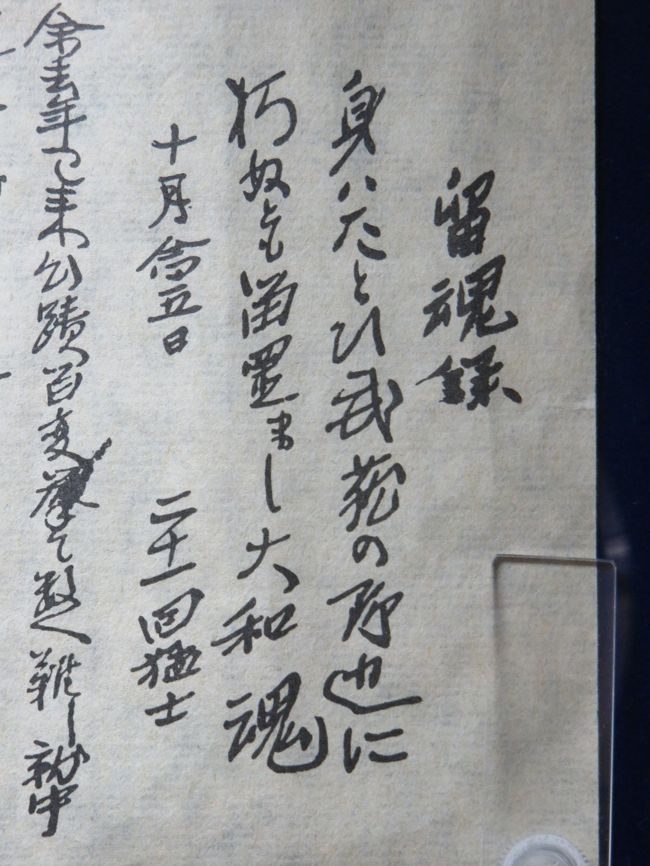 留魂録
身ハたとひ武蔵の野辺に
朽ぬとも留置まし大和魂
十月念五日　二十一回猛士
余去年已来心蹟百変挙て数へ難し就中